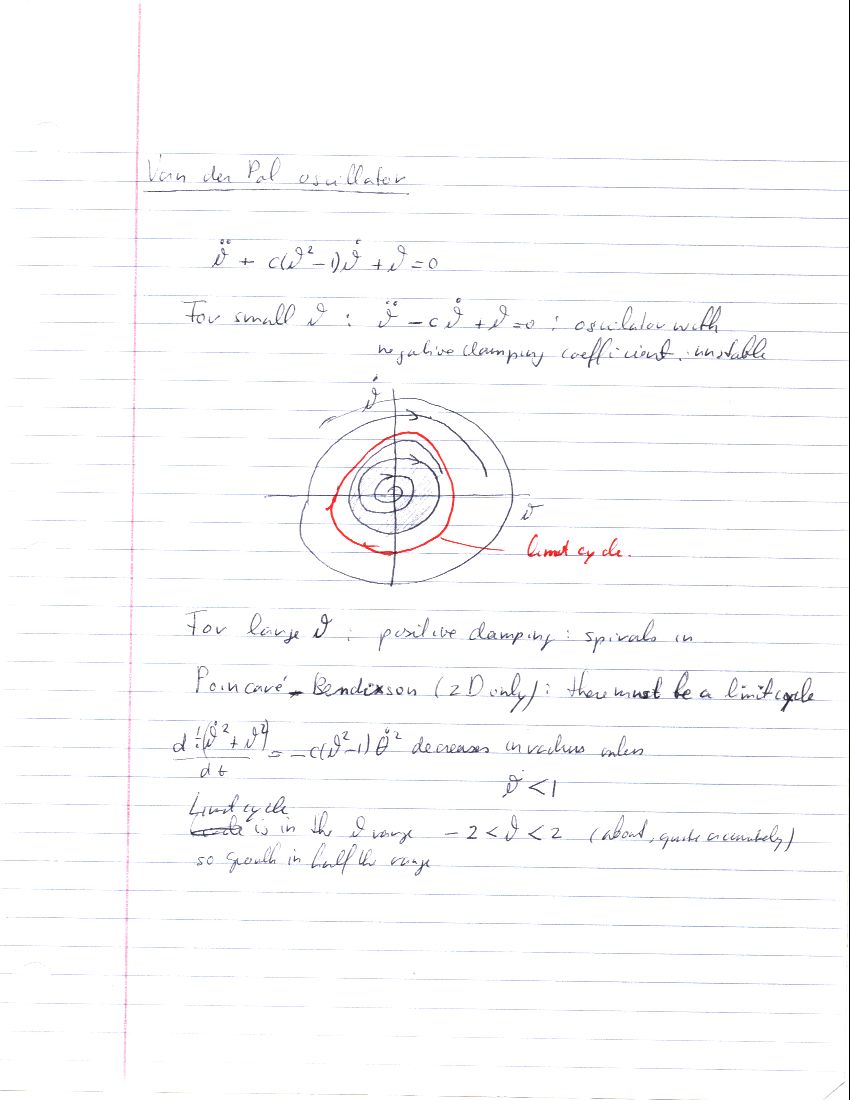 Van der Pol oscillator
ϑ̈ + c(ϑ²-1)ϑ̇ + ϑ = 0
For small ϑ : ϑ̈ - c ϑ̇ + ϑ = 0 : oscilator with
negative damping coefficient. unstable
ϑ̇
ϑ
limit cycle.
For large ϑ : positive damping : spirals in
Poincaré - Bendixson (2D only) : there must be a limit cycle
d ½(ϑ̇² + ϑ²) / dt = -c(ϑ²-1) θ̇² decreases in radius unless
ϑ < 1
Limit cycle
is in the ϑ range -2 < ϑ < 2 (about, quite accurately)
so growth in half the range